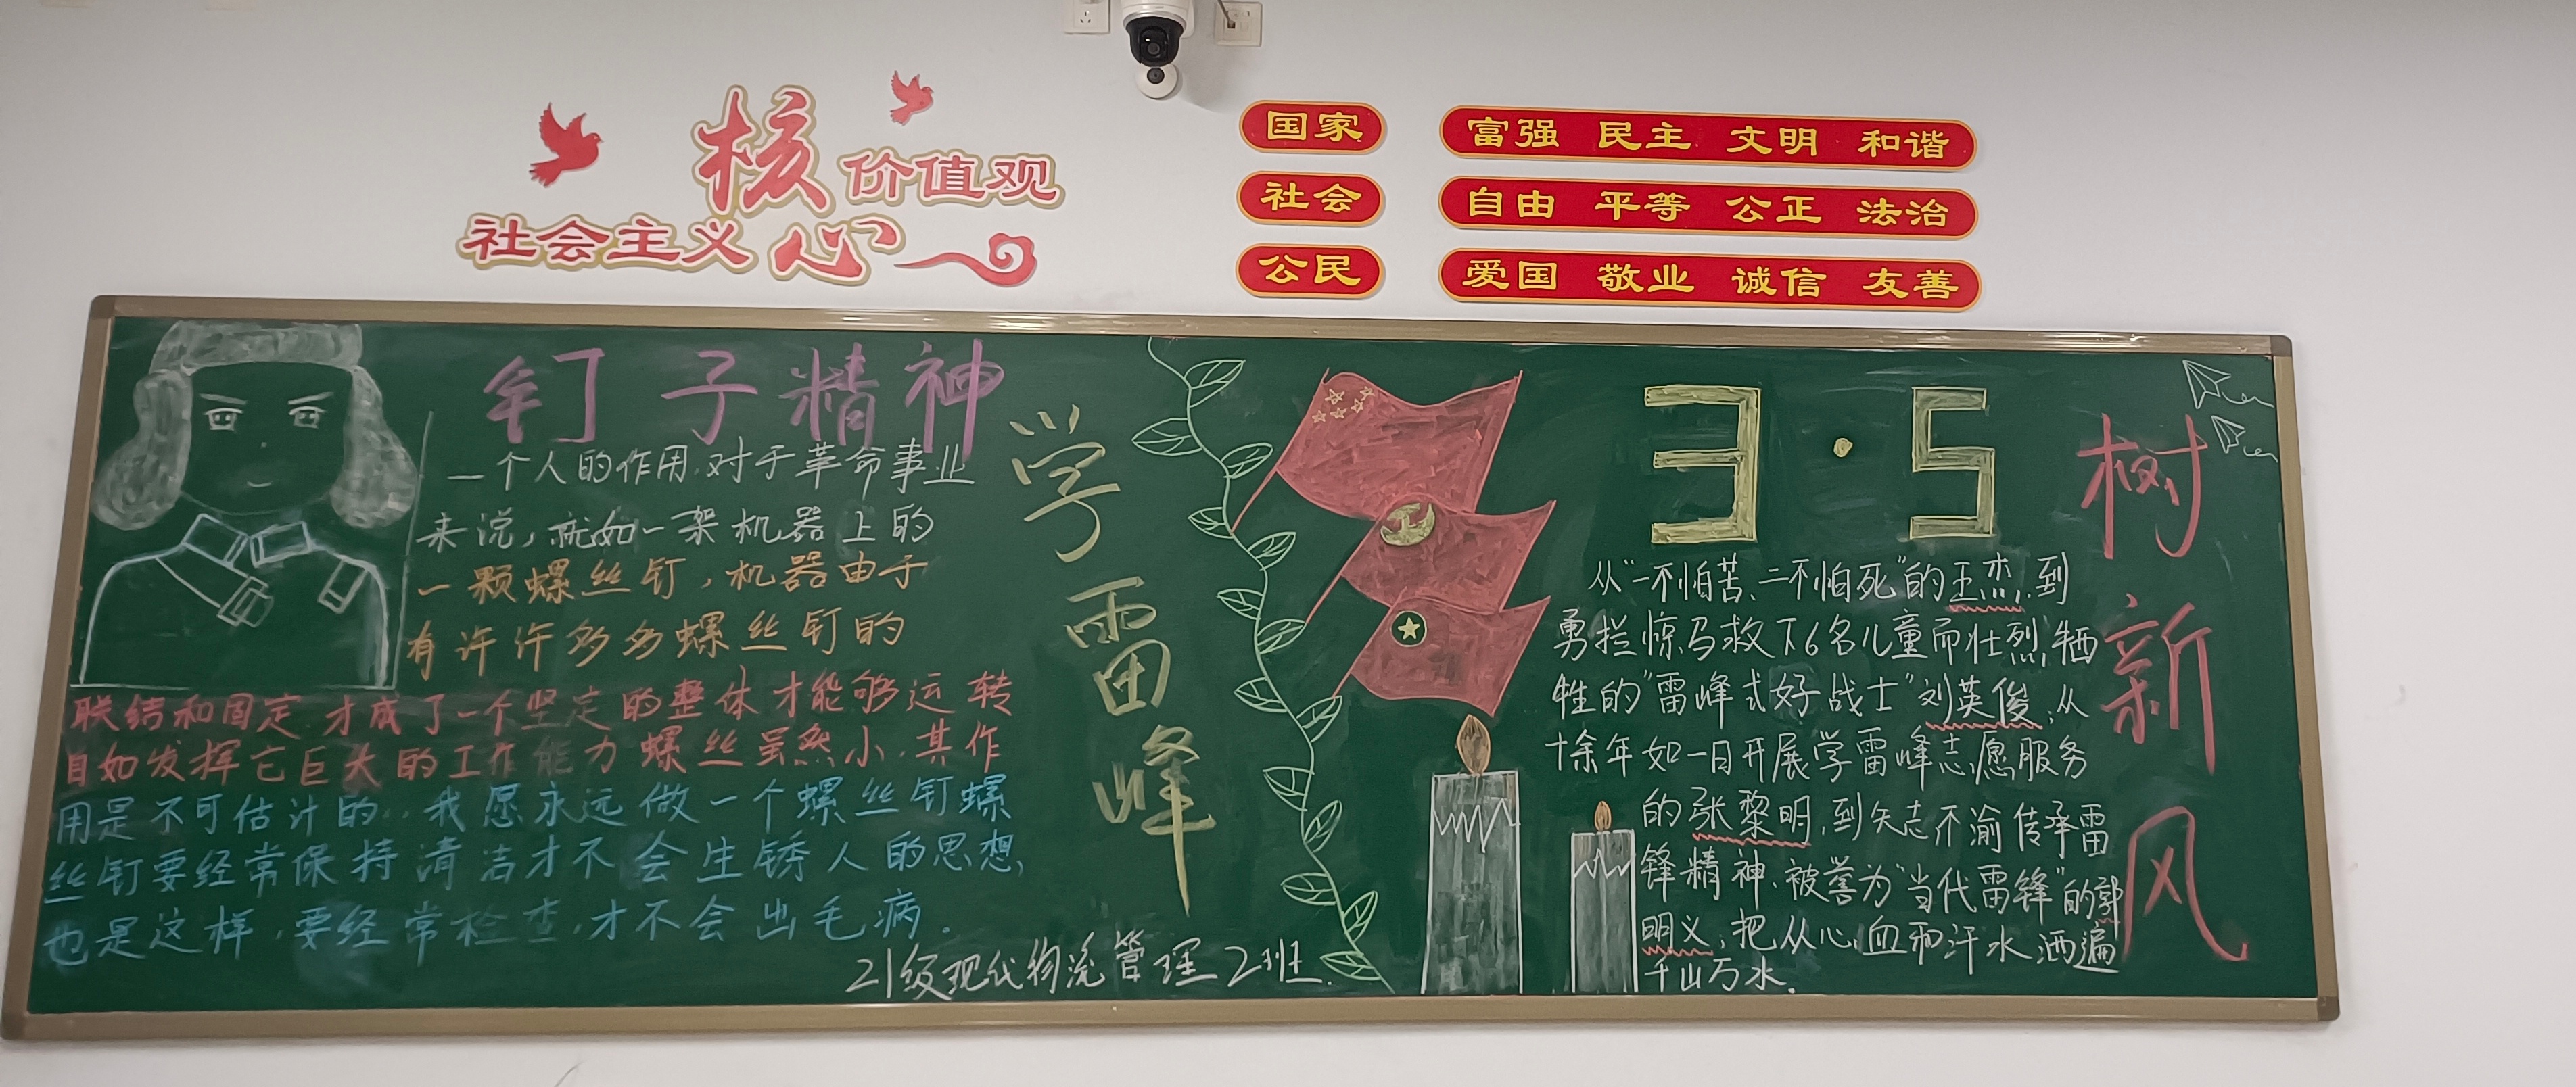 核
价值观
社会主义
心
国家 富强 民主 文明 和谐
社会 自由 平等 公正 法治
公民 爱国 敬业 诚信 友善
钉子精神
一个人的作用,对于革命事业
来说,就如一架机器上的
一颗螺丝钉,机器由于
有许许多多螺丝钉的
联结和固定,才成了一个坚定的整体才能够运转
自如发挥它巨大的工作能力螺丝虽然小,其作
用是不可估计的,我愿永远做一个螺丝钉螺
丝钉要经常保持清洁才不会生锈人的思想,
也是这样,要经常检查,才不会出毛病.
21级现代物流管理2班.
学雷峰
3·5
从"一不怕苦、二不怕死"的王杰,到
勇拦惊马救下6名儿童而壮烈牺
牲的"雷峰式好战士"刘英俊;从
十余年如一日开展学雷峰志愿服务
的张黎明,到矢志不渝传承雷
锋精神、被誉为"当代雷锋"的郭
明义;把从心血和汗水洒遍
千山万水.
树新风